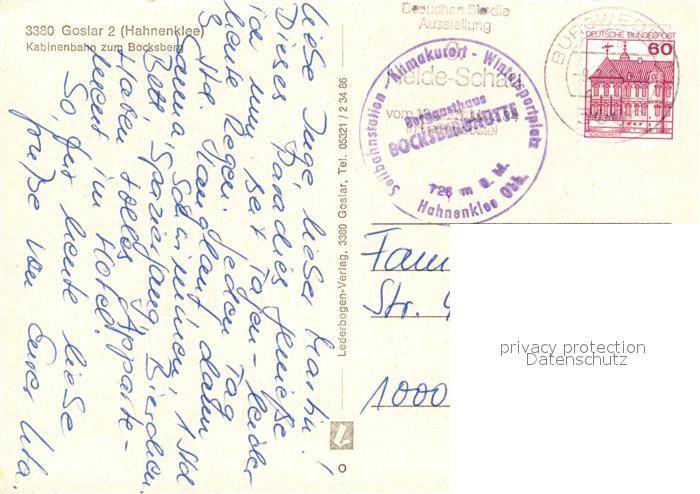 3380 Goslar 2 (Hahnenklee)
Kabinenbahn zum Bocksberg
Liebe Inge, lieber Martin!
Dieses Paradies genieße
ich nun seit Tagen - leider
heute Regen. Jeden Tag
Std. Langlauf, dann
Sauna, Schwimmen, 1 Std
Bett, Spaziergang, Bierchen.
Haben tolles Apparte-
ment im Hotel.
So, für heute liebe
Grüße von Eurer Uta.
Lederbogen-Verlag, 3380 Goslar, Tel. 05321 / 2 34 86
Besuchen Sie die
Ausstellung
Heide-Schau
vom
Seilbahnstation - Klimakurort - Wintersportplatz
Berggasthaus
BOCKSBERGHÜTTE
726 m ü. M.
Hahnenklee Obh.
BURGWEDEL
DEUTSCHE BUNDESPOST
60
Fam
Str.
1000
privacy protection
Datenschutz